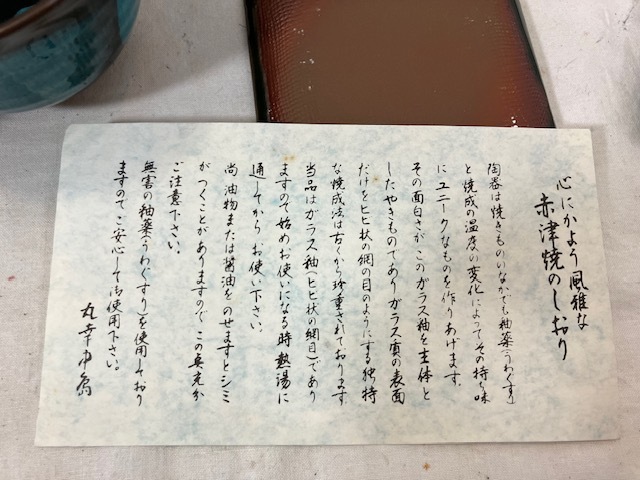 心にかよう風雅な
赤津焼のしおり
陶器は焼きものゝなかでも釉薬(うわぐすり)
と焼成の温度の変化によってその持ち味
にユニークなものを作りあげます。
その面白さがこのガラス釉を主体と
したやきものであり ガラス質の表面
だけをヒヒ状の網の目のようにする独特
な焼成法は古くから珍重されております
当品はガラス釉(ヒヒ状の網目)であり
ますので始めお使いになる時熱湯に
通してから お使い下さい。
尚 油物または醤油を のせますとシミ
がつくことがありますので この点充分
ご注意下さい。
無害の釉薬(うわぐすり)を使用しており
ますので ご安心して御使用下さい。
丸幸中島